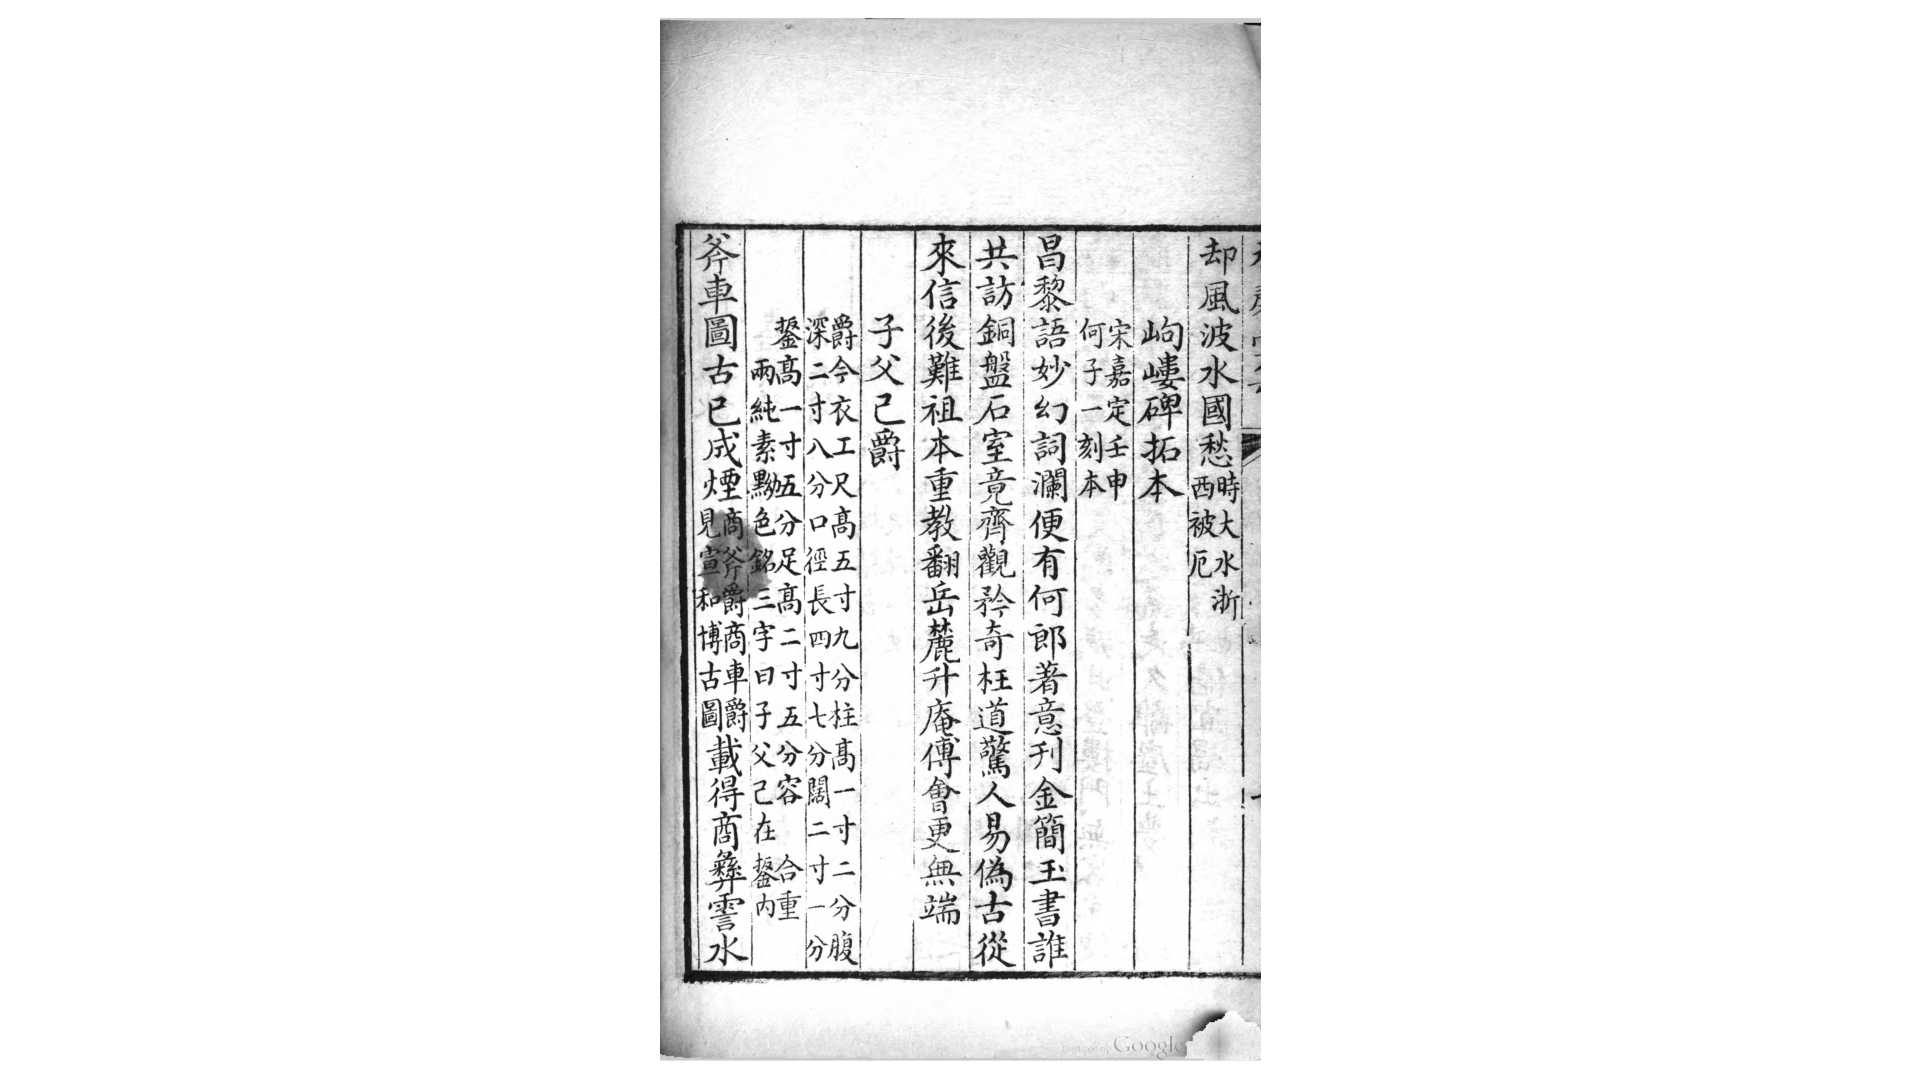 却風波水國愁時大水浙
西被厄
岣嶁碑拓本
宋嘉定壬申
何子一刻本
昌黎語妙幻詞瀾便有何郎著意刋金簡玉書誰
共訪銅盤石室竟齊觀矜奇枉道驚人易偽古從
來信後難祖本重教翻岳麓升庵傅會更無端
子父己爵
爵今衣工尺高五寸九分柱高一寸二分腹
深二寸八分口徑長四寸七分闊二寸一分
鋬高一寸五分足高二寸五分容合重
兩純素黝色銘三字曰子父己在鋬内
斧車圖古已成煙商斧爵商車爵
見宣和博古圖載得商彝霅水
Digitized by Google